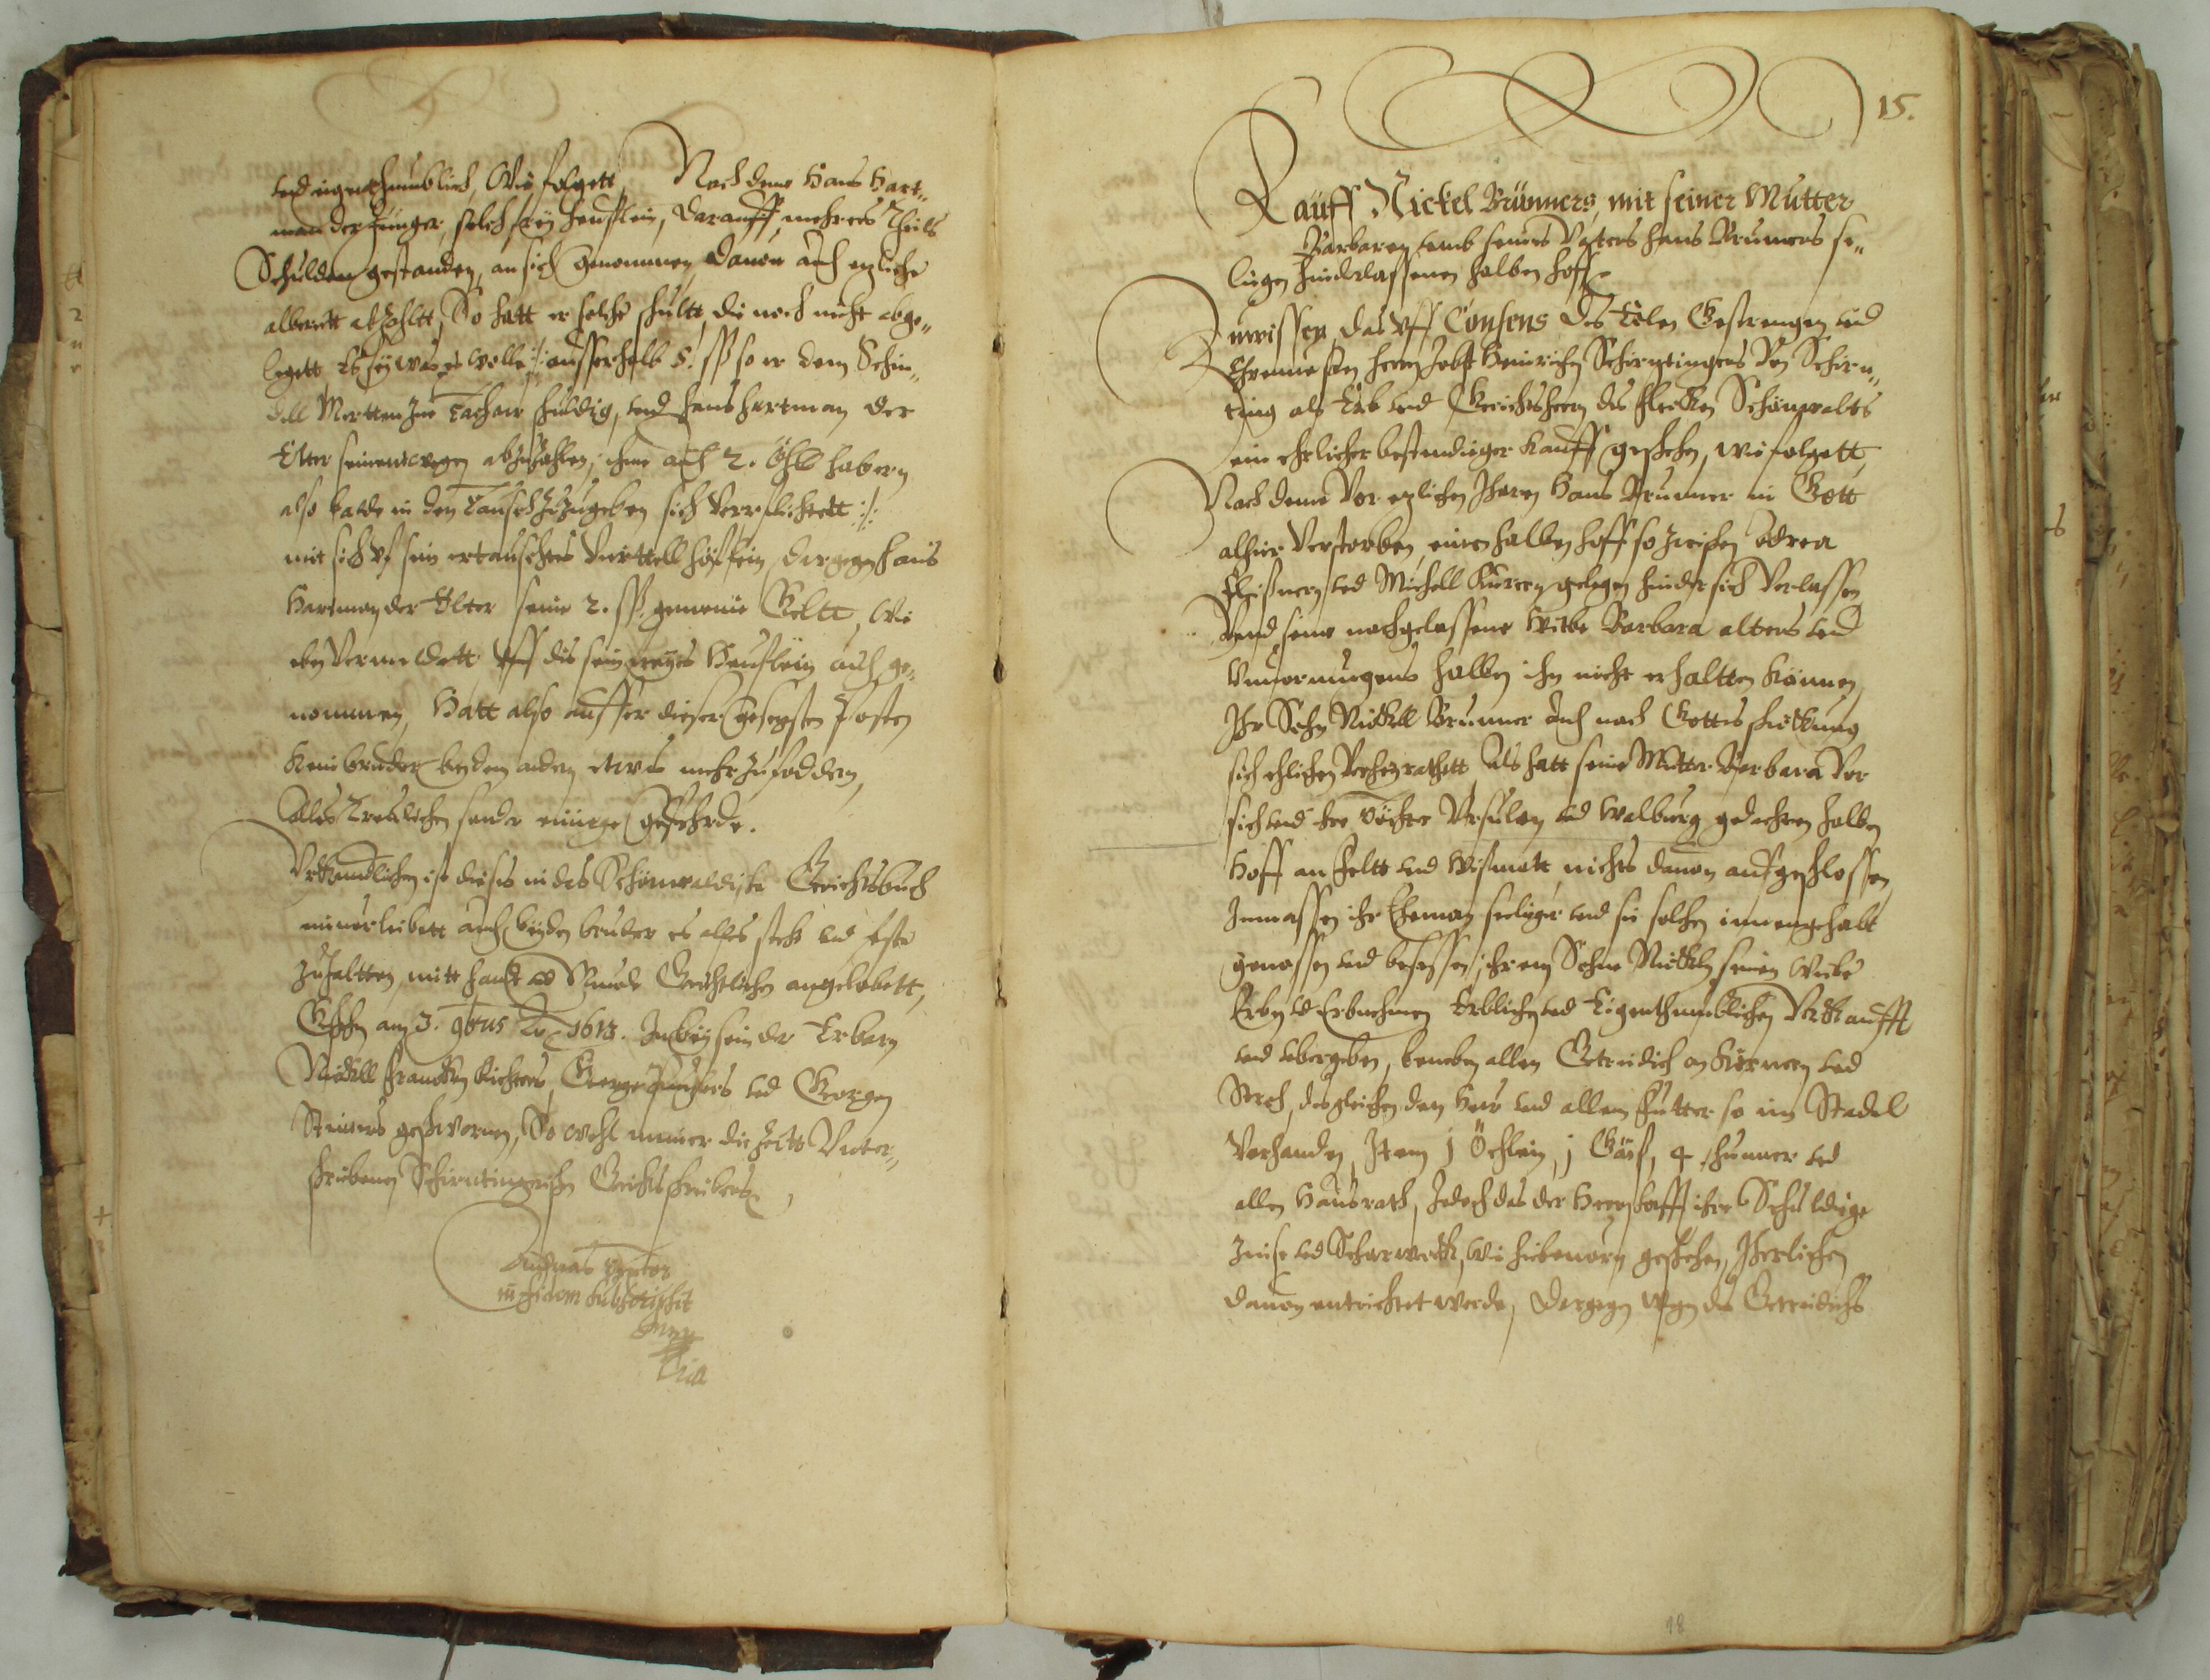 vnd eigenthumblich, Wie folgett, Nach deme Hans Hart„
man der Junger, solch frey heußlein, darauff mehrers theils
Schulden gestanden, an sich genommen, dauon auch ezliche
albereitt abzahltt, So hatt er solche schultt, die noch nicht abge„
legett, Es sey was es wolle :/: ausserhalb 5. fl so er dem Schin„
dell Mertten zue schuldig, vnd Hans Hartman der
Elter seinentwegen abzuzahlen, ihme auch 2. habern
also balde in den Tausch zuzugeben sich verpflichtett :/:
mit sich vf sein ertauschtes Vierttell höfflein, dargegen Hans
Hartman der Elter seine 2. fl. gemeine Geltt, Wie
oben vermeldett, vff dis sein freyes Heuslein auch ge„
nommen, Hatt also ausser dieser gesezten Posten
kein bruder bey dem andern etwas mehr zufoddern,
Alles Treulichen sonder einige geferde.
Vrkundlichen ist dieses in das Schönwaldische Gerichtsbuch
einuerleibett auch beyden bruder es alles steht vnd feste
zuhaltten, mitt handt vnd Munde Gerichtlichen angelobett,
Gschehen am 3. 9brus Ao 1613. In beysein der Erbarn
Nickell Francken Richters, George vnd Georgen
geschwornen, So wohl meiner die Zeitt Vnter„
schriebenen Schirntingischen Gerichtsschreibers,
Andreas
subscripsit
15.
Kauff Nickel Brunners, mit seiner Mutter
Barbaren vmb seines Vaters Hans Brunners se„
ligen hinderlassenen halben hoff.
Zuwissen, das vff Consens des Edlen Gestrengen vnd
Ehrnuesten herrn Jobst Heinrichen Schirntingers von Schirn„
ting als Erb vnd Gerichtsherrn des flecken Schönwalts
ein ehrlicher bestendiger kauff geschehen, wie folgett,
Nach deme vor ezlichen Jharen Hans Brunner in Gott
alhier verstorben, einen halben hoff so zwischen Endrea
vnd Michell gelegen hinder sich verlassen,
Vnnd seine nachgelassene Witbe Barbara alters vnd
Vnuormugens halben ihn nicht erhaltten können,
Ihr Sohn Nickell Brunner auch nach Gottes schickung
sich ehlichen verheyrathett, Als hatt seine Mutter Barbara vor
sich vnd ihre döchter Vrsulen vnd Walburg gedachten halben
Hoff an feltt vnd Wismatt, nichts dauon ausgeschlossen,
Inmassen ihr Eheman seeliger vnd sie solchen innengehabt
genossen vnd besessen, ihrem Sohne Nickeln seinen Weibe
Erben vnd Erbnehmen Erblichen vnd Eigenthumblichen Verkaufft
vnd vbergeben, beneben allen Getreidich an körnern vnd
Stroh, desgleichen den Heu vnd allem futter so im Stadel
Vorhanden, Item j Öchslein, j Gais, 4 vnd
allen Hausrath, Jedoch das der Herrschafft ihre Schuldige
Zinse vnd Scharwerck, wie hiebeuorn geschehen, Jherlichen
dauon entrichtet werde, Dargegen wegen des Getreidichs
18